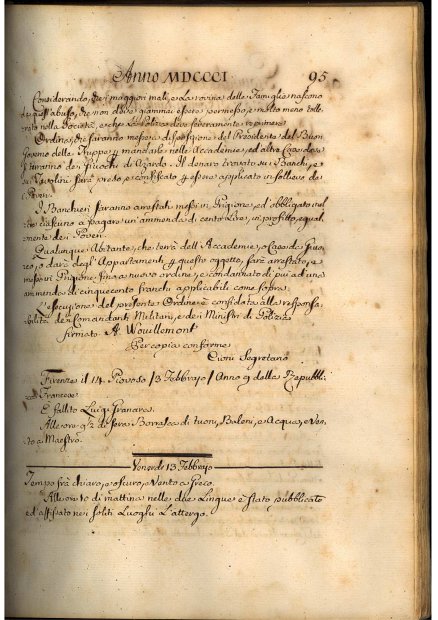 Anno MDCCCI 95
Considerando, che i maggiori mali, e la rovina delle Famiglie nascono
da quest'abuso, che non deve giammai essere permesso, e molto meno tolle-
rato nella Società, e che la Polizia deve severamente reprimere
Ordina, che saranno messe a disposizione del Presidente del Buon
Governo delle Truppe per mandarle nelle Accademie, ed altre Case dove
si terranno dei Giuochi di Azardo. Il denaro trovato su i Banchi, e
su i Tavolini sarà preso, e confiscato per essere applicato in sollievo de
Poveri.
I Banchieri saranno arrestati, messi in Prigione, ed obbligato nel
ciascuno a pagare un'ammenda di cento Lire, in profitto, egual-
mente dei Poveri.
Qualunque Abitante, che terrà dell'Accademie, o Case di Giuo-
co, o darà degl'Appartamenti per questo oggetto, sarà arrestato, e
messo in Prigione fino a nuovo ordine, e condannato di più ad una
ammenda di cinquecento franchi applicabili come sopra.
L'esecuzione del presente Ordine è confidata alla responsa-
bilità dei Comandanti Militari, e dei Ministri di Polizia
firmato A. Wouillemont
Per copia conforme
Cioni Segretario
Firenze il 14. Piovoso /3 Febbrajo/ Anno 9 della Repubbli-
ca Francese
È fallito Luigi Pranare.
Alle ore 9½ di sera Borrasca di tuoni, Baleni, e Acqua, e Ven-
to a Maestro.
Venerdì 13 Febbrajo
Tempo frà chiaro, e oscuro, e Vento a Greco.
Alle ore 10 di mattina nelle due Lingue è stato pubblicato
ed affissato nei soliti Luoghi l'attergo.